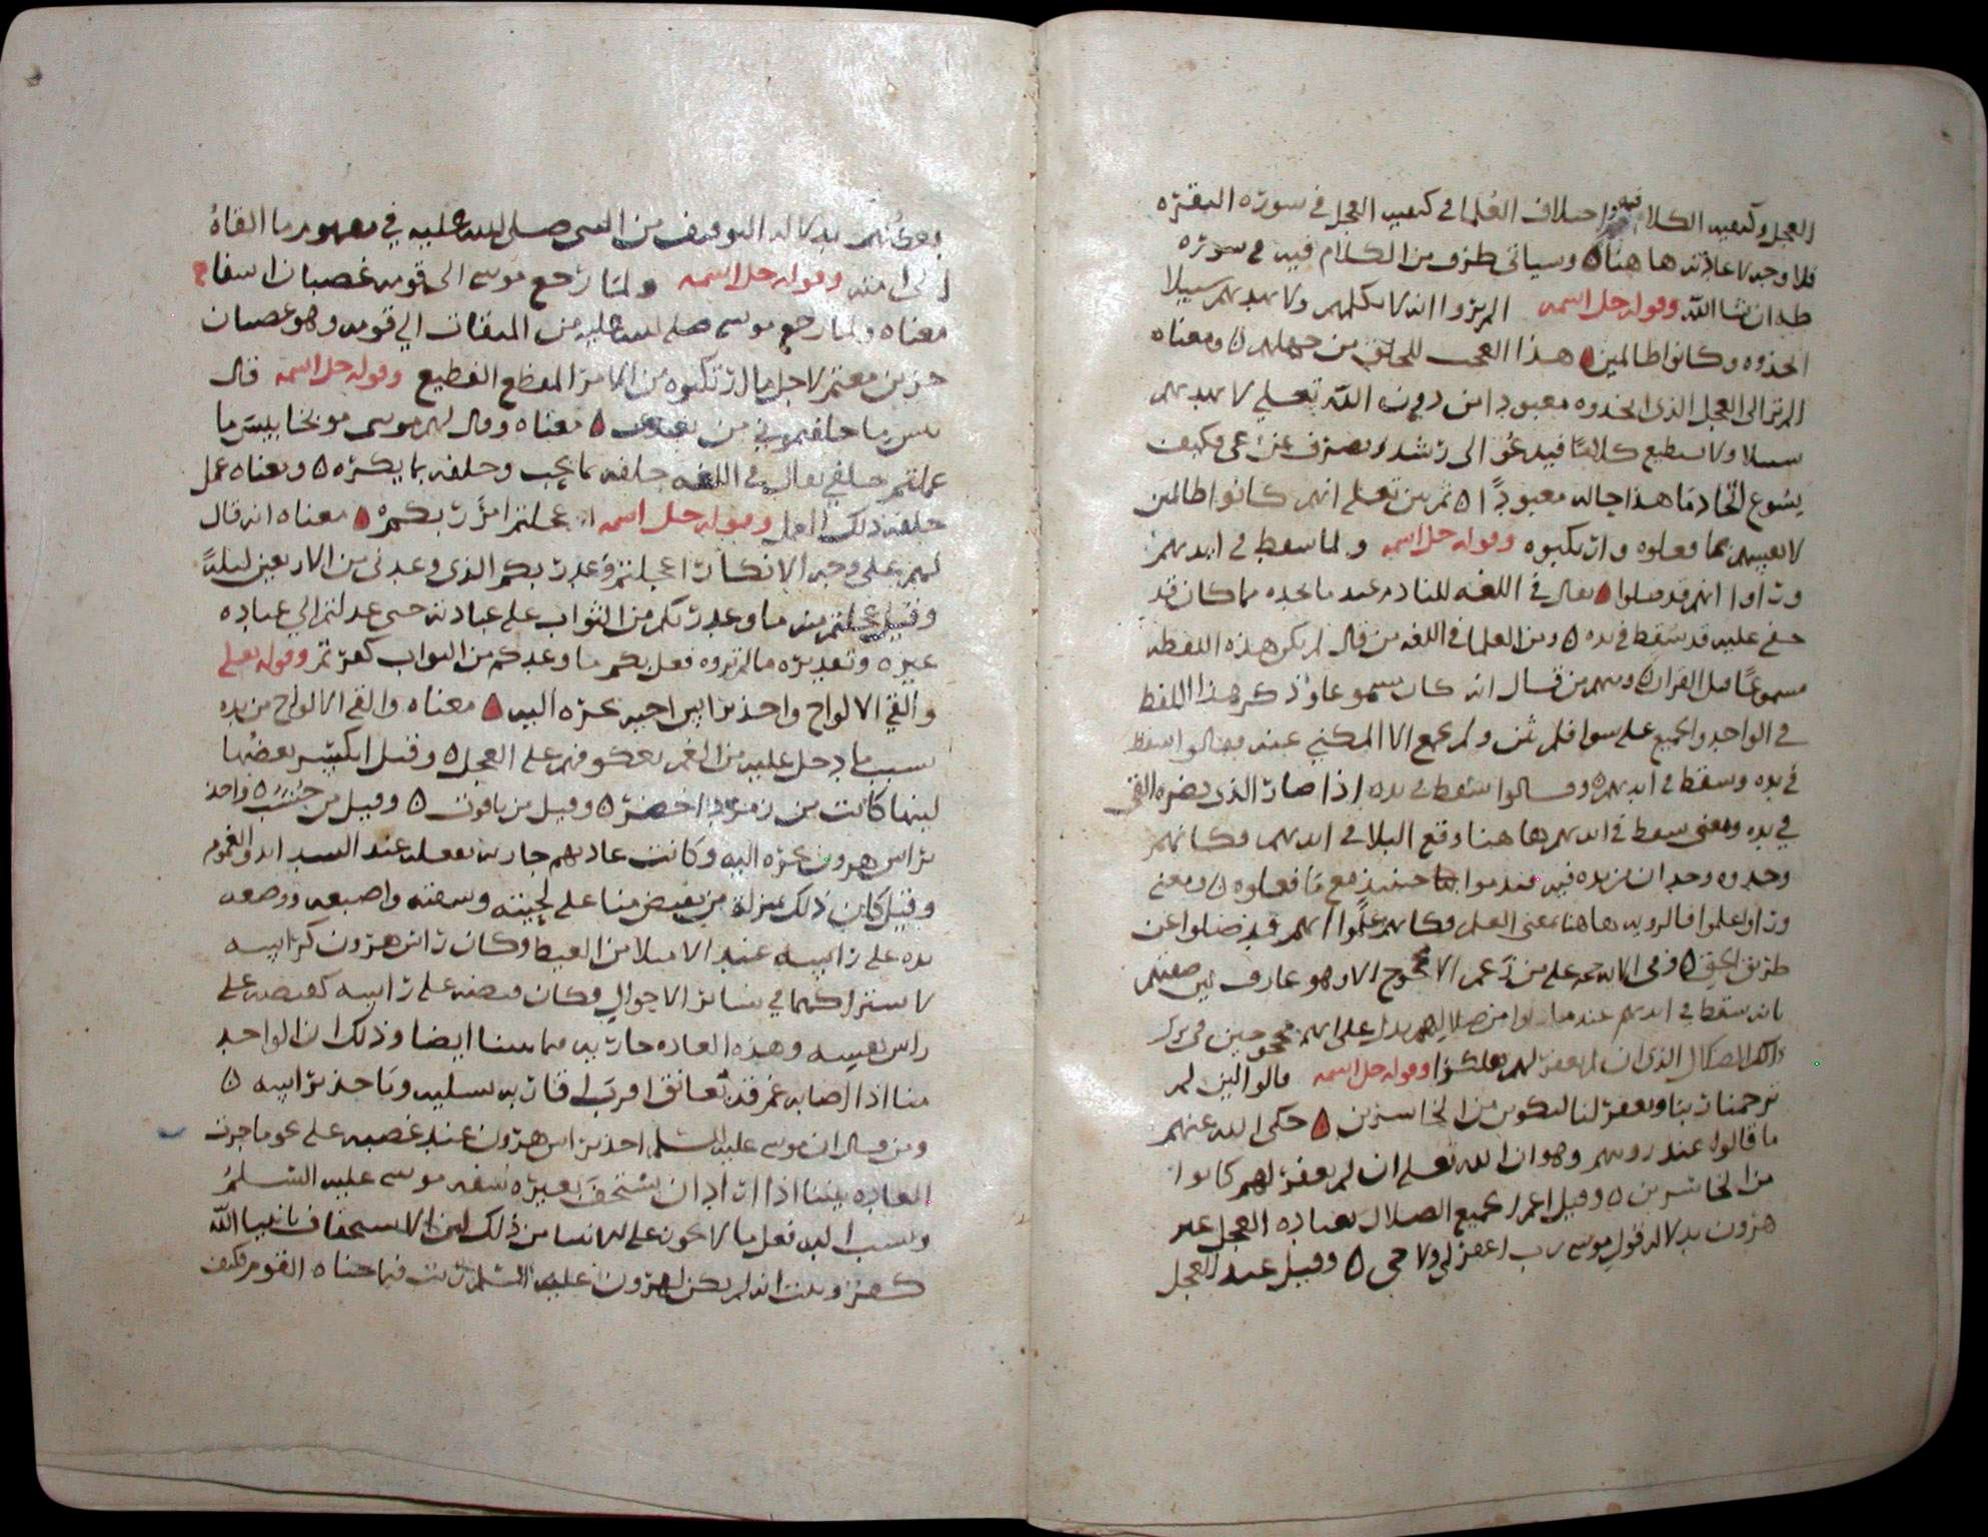 العجل وكيفيه الكلام فيه واختلاف العلما في كيفيه العجل في سورة البقره
فلا وجه لاعادته هاهنا ٥ وسياتي طرف من الكلام فيه في سورة
طه ان شا الله وقوله جل اسمه الم يروا انه لا يكلمهم ولا يهديهم سبيلا
اتخذوه وكانوا ظالمين ٥ هذا العجب للخلق من جهلهم ٥ ومعناه
الم تر الى العجل الذي اتخذوه معبودا من دون الله تعلى لا يهديهم
سبيلا ولا يستطيع كلاما فيدعو الى رشد او يصرف عن اعمى فكيف
يسوغ اتخاذ ما هذا حاله معبودًا ٥ ثم بين تعلى انهم كانوا ظالمين
لانفسهم بما فعلوه وارتكبوه وقوله جل اسمه ولما سقط في ايديهم
وراوا انهم قد ضلوا ٥ يقال في اللغه للنادم عند ما يجده مما كان قد
خفي عليه قد سقط في يده ٥ ومن العلما في اللغه من قال لم يكن هذه اللفظه
مسموعًا قبل القران ٥ ومنهم من قال انه كان مسموعا وذكر هذا اللفظ
في الواحد والجميع على سوا فلم يثن ولم يجمع الا المكني عنه فقالوا سقط
في يده وسقط في ايديهم ٥ وقالوا سقط في يده اذا صار الذي يضره القي
في يده ومعنى سقط في ايديهم هاهنا وقع البلا في ايديهم فكانهم
وجدوه وجدان من يده فيه فندموا حينئذ مع ما فعلوه ٥ ومعنى
وراوا علموا فالرويه هاهنا بمعنى العلم فكانهم علموا انهم قد ضلوا عن
طريق الحق ٥ وفي الايه حجه على من زعم الا محجوج الا وهو عارف لمن صفتهم
بانه سقط في ايديهم عند ما راوا من ضلالهم يدل على انهم محجوجين في ترك
ذلك الضلال الذي ان لم يغفر لهم هلكوا وقوله جل اسمه قالوا لين لم
يرحمنا ربنا ويغفر لنا لنكونن من الخاسرين ٥ حكى الله عنهم
ما قالوا عند رويهم وهو ان الله تعلى ان لم يغفر لهم كانوا
من الخاسرين ٥ وقيل جميع الضلال بعباده العجل غير
هرون بدلاله قول موسى رب اغفر لي ولاخي ٥ وقيل عبد العجل
بعضهم بدلاله التوقيف من النبي صلى الله عليه في ما القاه
الى امته وقوله جل اسمه ولما رجع موسى الى قومه غضبان اسفا
معناه ولما رجع موسى صلى الله عليه من الميقات الى قومه وهو غضبان
حزين مغتم لاجل ما ارتكبوه من الامر المفظع الفظيع وقوله جل اسمه قال
بئس ما خلفتموني من بعدي ٥ معناه وقال لهم موسى موبخا بيس ما
عملتم خلفي يقال في اللغه خلفه بما يحب وخلفه بما يكره ٥ ومعناه عمل
خلفه ذلك العمل وقوله جل اسمه اعجلتم امر ربكم ٥ معناه انه قال
لهم على وجه الانكار اعجلتم وعد ربكم الذي وعدني من الاربعين ليلة
وقيل عجلتم منه ما وعد ربكم من الثواب على عبادته حتى عدلتم الى عباده
غيره وتقديره ما لم تروه فعل بكم ما وعدكم من الثواب كفرتم وقوله تعلى
والقى الالواح واخذ براس اخيه يجره اليه ٥ معناه والقى الالواح من يده
بسبب ما دخل عليه من الغم بعكوفهم على العجل ٥ وقيل انكسر بعضها
انها كانت من زمرد اخضر ٥ وقيل من ياقوت ٥ وقيل من خشب ٥ واخذ
براس هرون يجره اليه وكانت عادتهم جاريه بفعله عند الشدايد والغموم
وقيل كان ذلك بمنزلة من يقبض منا على لحيته وشفته واصبعه ووضعه
يده على راسه عند الامتلا من الغيظ وكان راس هرون كراسه
لاشتراكهما في سائر الاحوال وكان قبضه على راسه كقبضه على
راس نفسه وهذه العاده جاريه فيما بيننا ايضا وذلك ان الواحد
منا اذا اصابه غم فقد تعانق اقرب اقاربه يسليه وياخذ براسه ٥
ومن قال ان موسى عليه السلم اخذ براس هرون عند غضبه على نحو ما جرت
العاده بيننا اذا اراد ان يستخف بغيره سفه موسى عليه السلم
ونسب اليه فعل ما لا يجوز على الانبيا من ذلك لان الاستخفاف بانبيا الله
كفر وبينت انه لم يكن لهرون عليه السلم ذنب فيما جناه القوم فكيف